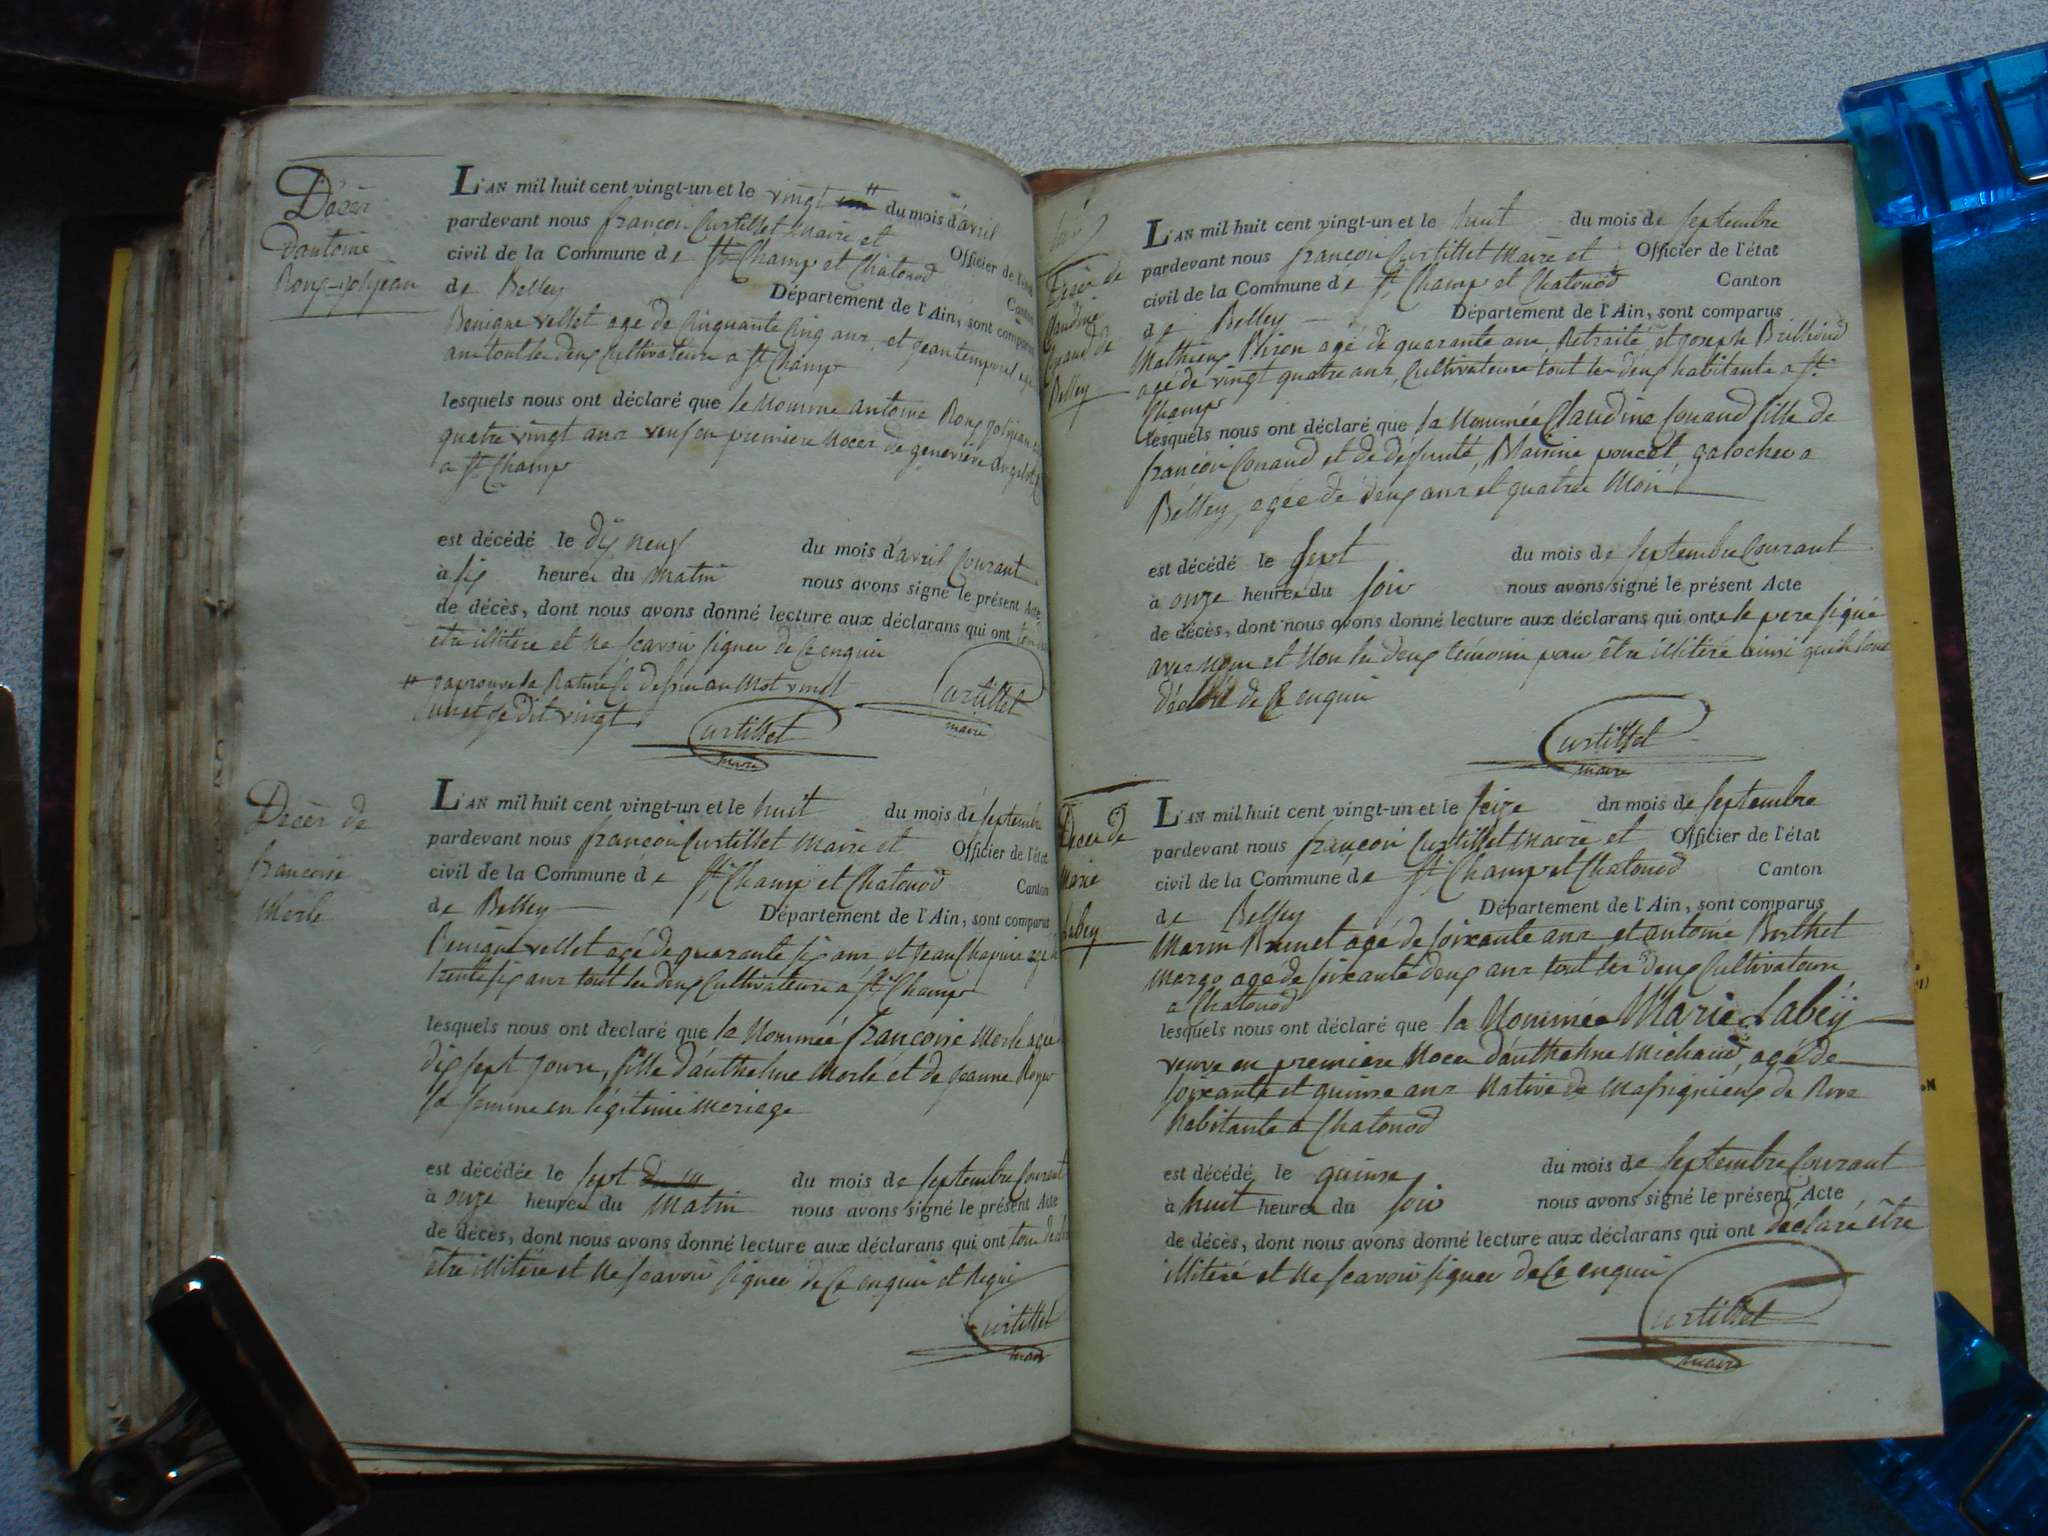 Décès
d'antoine
Roux-jolijean
L'AN mil huit cent vingt-un et le vingt du mois d'avril
pardevant nous françois Curtillet Maire et Officier de l'état
civil de la Commune de St Champ et Chatonod Canton
de Belley Département de l'Ain, sont comparus
Benigne vellet agé de Cinquante Cinq ans, et jean
ans tout les deux Cultivateurs a St Champ
lesquels nous ont déclaré que le Nommé antoine Roux jolijean
quatre vingt ans veuf en premiere Noces de genevieve
a St Champ
est décédé le dix neuf du mois d'avril Courant
à six heures du matin nous avons signé le présent Acte
de décès, dont nous avons donné lecture aux déclarans qui ont
être illitéré et Ne scavoir signer de Ce enquis
vingt
un et se dit vingt
Curtillet
maire
Curtillet
maire
Décès de
françoise
Merle
L'AN mil huit cent vingt-un et le huit du mois de septembre
pardevant nous françois Curtillet Maire et Officier de l'état
civil de la Commune de St Champ et Chatonod Canton
de Belley Département de l'Ain, sont comparus
Benigne vellet agé de quarante six ans et jean agé
trente six ans tout les deux Cultivateurs a St Champ
lesquels nous ont déclaré que la Nommée françoise Merle agée
dix sept jours, fille d'anthelme Merle et de jeanne
sa femme en légitime mariage
est décédée le sept du mois de septembre Courant
à onze heures du Matin nous avons signé le présent Acte
de décès, dont nous avons donné lecture aux déclarans qui ont tous
être illitéré et Ne scavoir signer de Ce enquis et Requis
Curtillet
maire
Décès de
Claudine
Conand de
Belley
L'AN mil huit cent vingt-un et le huit du mois de septembre
pardevant nous françois Curtillet Maire et Officier de l'état
civil de la Commune de St Champ et Chatonod Canton
de Belley Département de l'Ain, sont comparus
Mathieux agé de quarante ans, Retraité et joseph
agé de vingt quatre ans, Cultivateurs tout les deux habitants a St
Champ
lesquels nous ont déclaré que la Nommée Claudine Conand fille de
françois Conand et de défunte poncet, galocher a
Belley, agée de deux ans et quatre Mois
est décédé le sept du mois de septembre Courant
à onze heures du soir nous avons signé le présent Acte
de décès, dont nous avons donné lecture aux déclarans qui ont le pere signé
avec Nous et Non les deux témoins pour être illitéré ainsi qu'ils l'ont
déclaré de Ce enquis
Curtillet
maire
Décès de
Marie
Labey
L'AN mil huit cent vingt-un et le seize du mois de septembre
pardevant nous françois Curtillet Maire et Officier de l'état
civil de la Commune de St Champ et Chatonod Canton
de Belley Département de l'Ain, sont comparus
Marin Brunet agé de soixante ans et antoine Berthet
agé de soixante deux ans tout les deux Cultivateurs
a Chatonod
lesquels nous ont déclaré que la Nommée Marie Labeÿ
veuve en premiere Noces d'anthelme Michaud, agé de
soixante et quinse ans Native de Massignieux de Rive
habitante a Chatonod
est décédé le quinse du mois de septembre Courant
à huit heures du soir nous avons signé le présent Acte
de décès, dont nous avons donné lecture aux déclarans qui ont déclaré être
illitéré et Ne scavoir signer de Ce enquis
Curtillet
maire